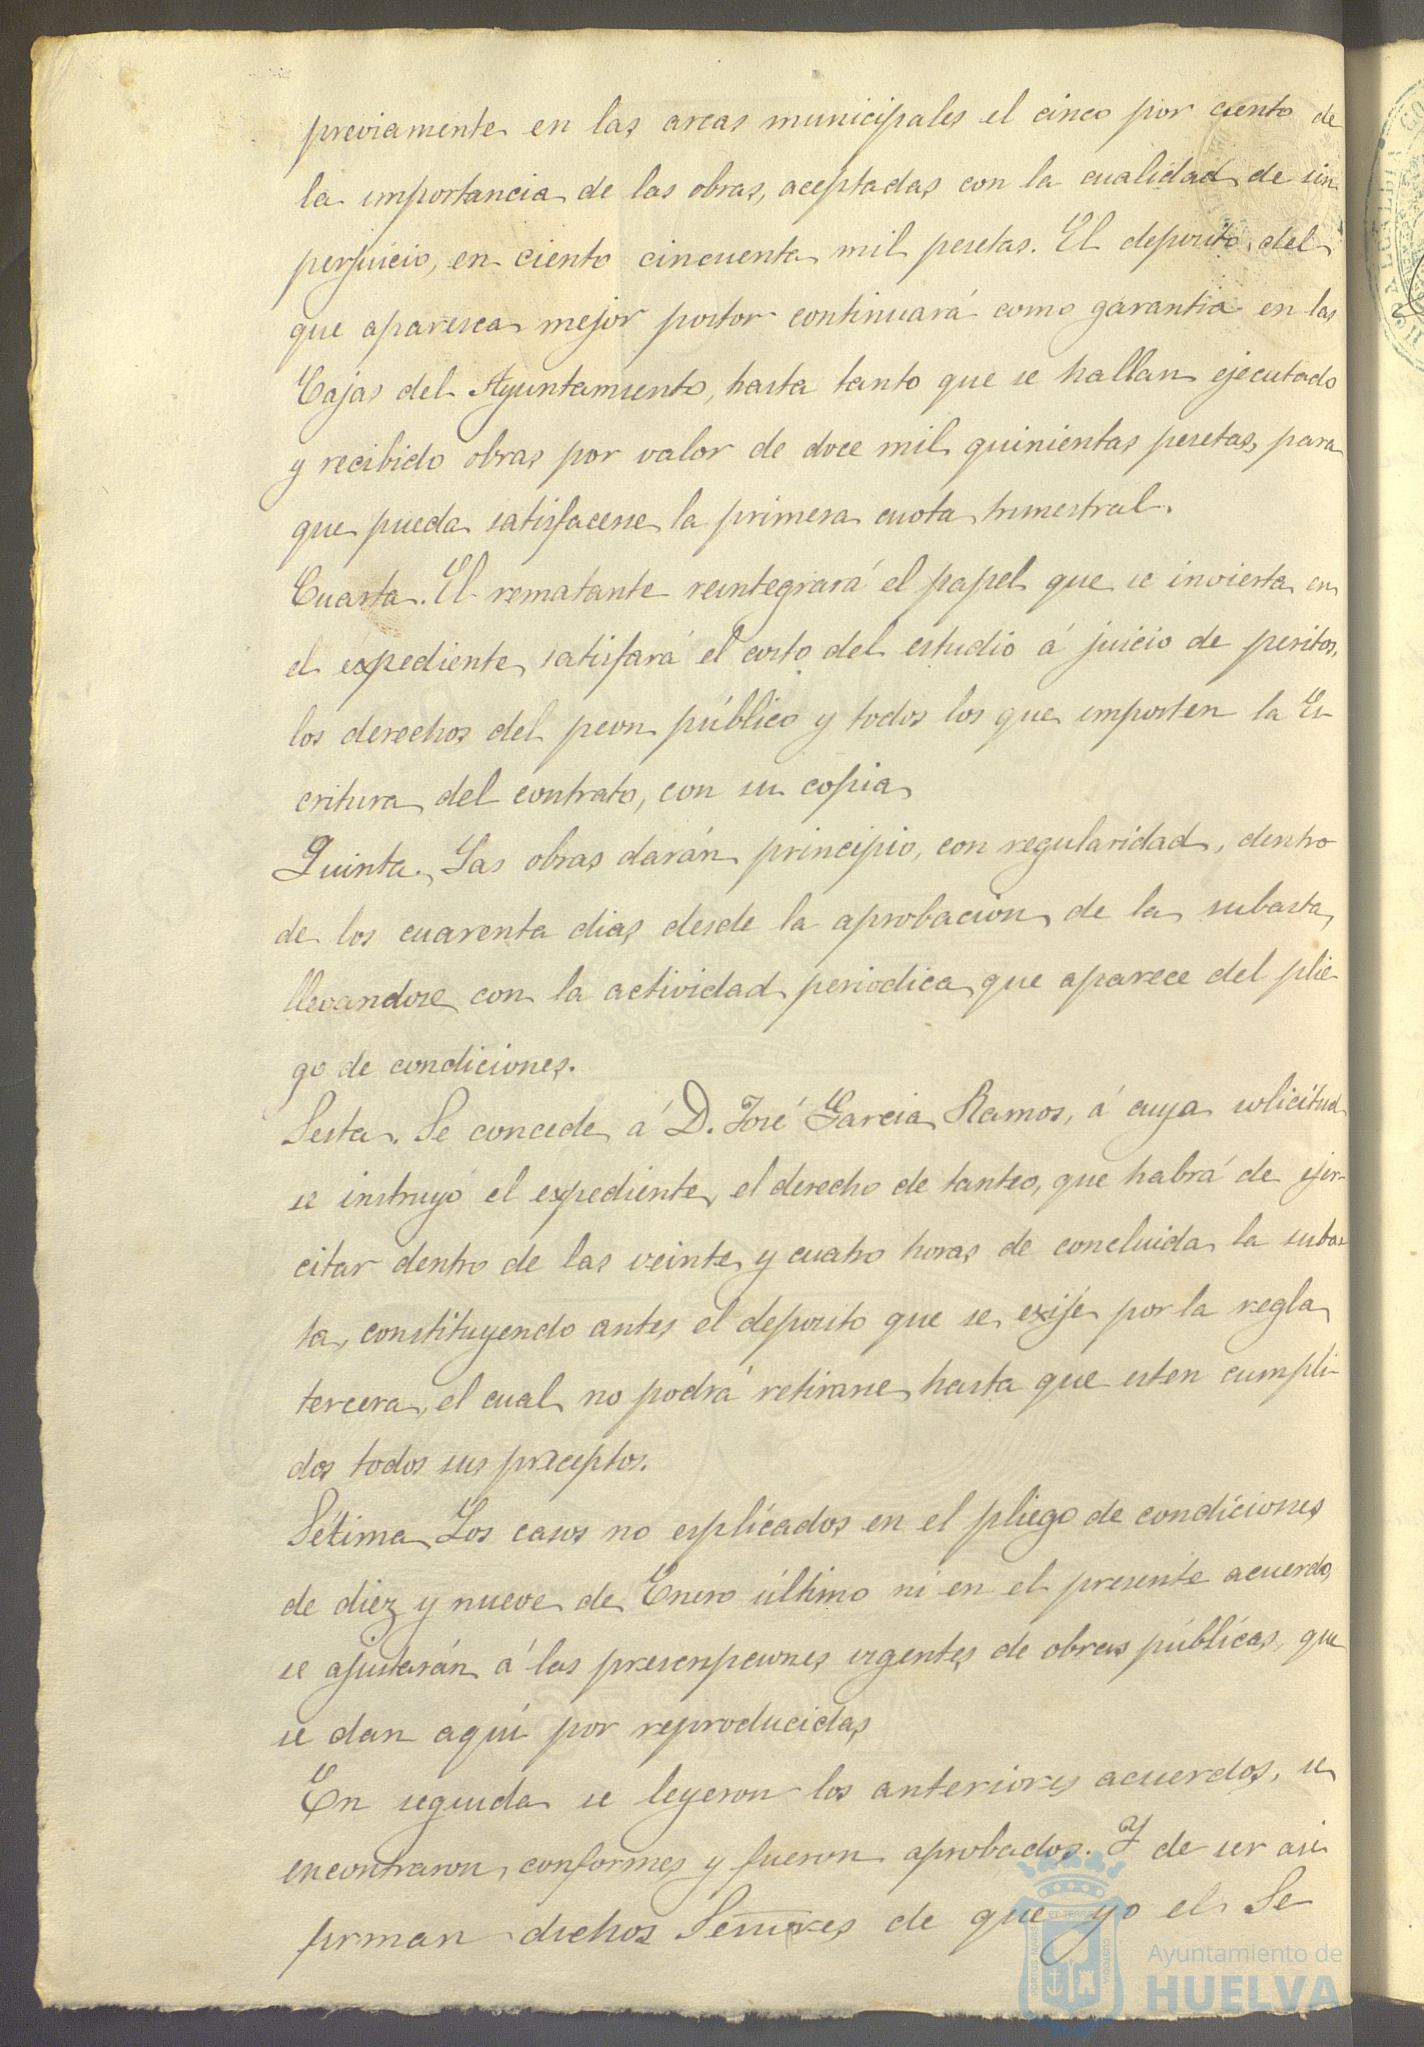 previamente en las arcas municipales el cinco por ciento de
la importancia de las obras, aceptadas con la cualidad de sin
perjuicio, en ciento cincuenta mil pesetas. El deposito del
que aparesca mejor postor continuará como garantia en las
Cajas del Ayuntamiento, hasta tanto que se hallan ejecutado
y recibido obras por valor de doce mil quinientas pesetas, para
que pueda satisfacerse la primera cuota trimestral.
Cuarta. El rematante reintegrará el papel que se invierta en
el expediente, satisfará el costo del estudio á juicio de peritos,
los derechos del peon público y todos los que importen la Es
critura del contrato, con su copia
Quinta. Las obras darán principio, con regularidad, dentro
de los cuarenta dias desde la aprobacion de la subasta,
llevandose con la actividad periodica que aparece del plie-
go de condiciones.
Sesta. Se concede á D. José Garcia Ramos, á cuya solicitud
se instruyó el expediente, el derecho de tanteo, que habrá de ejer-
citar dentro de las veinte y cuatro horas de concluida la subas
ta, constituyendo antes el deposito que se exije por la regla
tercera, el cual no podrá retirarse hasta que esten cumpli-
dos todos sus preceptos.
Sétima Los casos no esplicados en el pliego de condiciones
de diez y nueve de Enero último ni en el presente acuerdo,
se ajustarán á las prescripciones vigentes de obras públicas, que
se dan aquí por reproducidas
En seguida se leyeron los anteriores acuerdos, se
encontraron conformes y fueron aprobados. Y de ser asi
firman dichos Señores de que yo el Se
Ayuntamiento de
HUELVA